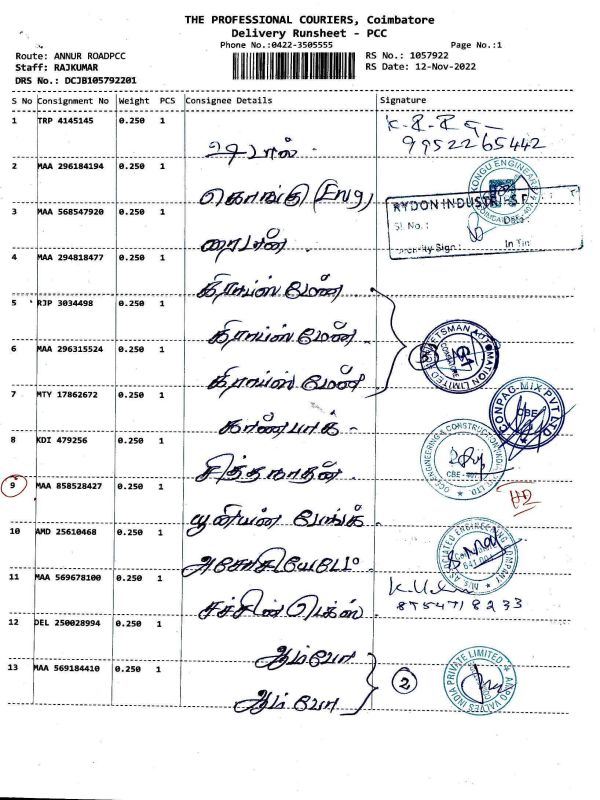 THE PROFESSIONAL COURIERS, Coimbatore
Delivery Runsheet - PCC
Phone No.:0422-3505555 Page No.:1
Route: ANNUR ROADPCC RS No.: 1057922
Staff: RAJKUMAR RS Date: 12-Nov-2022
DRS No.: DCJB105792201
S No Consignment No Weight PCS Consignee Details Signature
1 TRP 4145145 0.250 1
9952265442
2 MAA 296184194 0.250 1 கொங்கு (Eng)
KONGU ENGINEERS
3 MAA 568547920 0.250 1 ரைடான்
RYDON INDUSTRIES
Sl. No.: Date:
Security Sign: In Tim
4 MAA 294818477 0.250 1 கிராப்ஸ் மேன்
5 RJP 3034498 0.250 1 கிராப்ஸ் மேன்
6 MAA 296315524 0.250 1 கிராப்ஸ் மேன்
3
CRAFTSMAN AUTOMATION LIMITED
7 MTY 17862672 0.250 1 கான்பாக்
CONPAC-MIX PVT LTD
CBE
8 KDI 479256 0.250 1 சித்தநாதன்
9 MAA 858528427 0.250 1 யூனியன் பேங்க்
HD
10 AMD 25610468 0.250 1 அசோசியேடெட்
M/s ASSOCIATED ENGINEERING COMPANY
11 MAA 569678100 0.250 1 சச்சின் டெக்ஸ்
8754718233
12 DEL 250028994 0.250 1 ஆம்போ
13 MAA 569184410 0.250 1 ஆம்போ
2
AMPO VALVES INDIA PRIVATE LIMITED